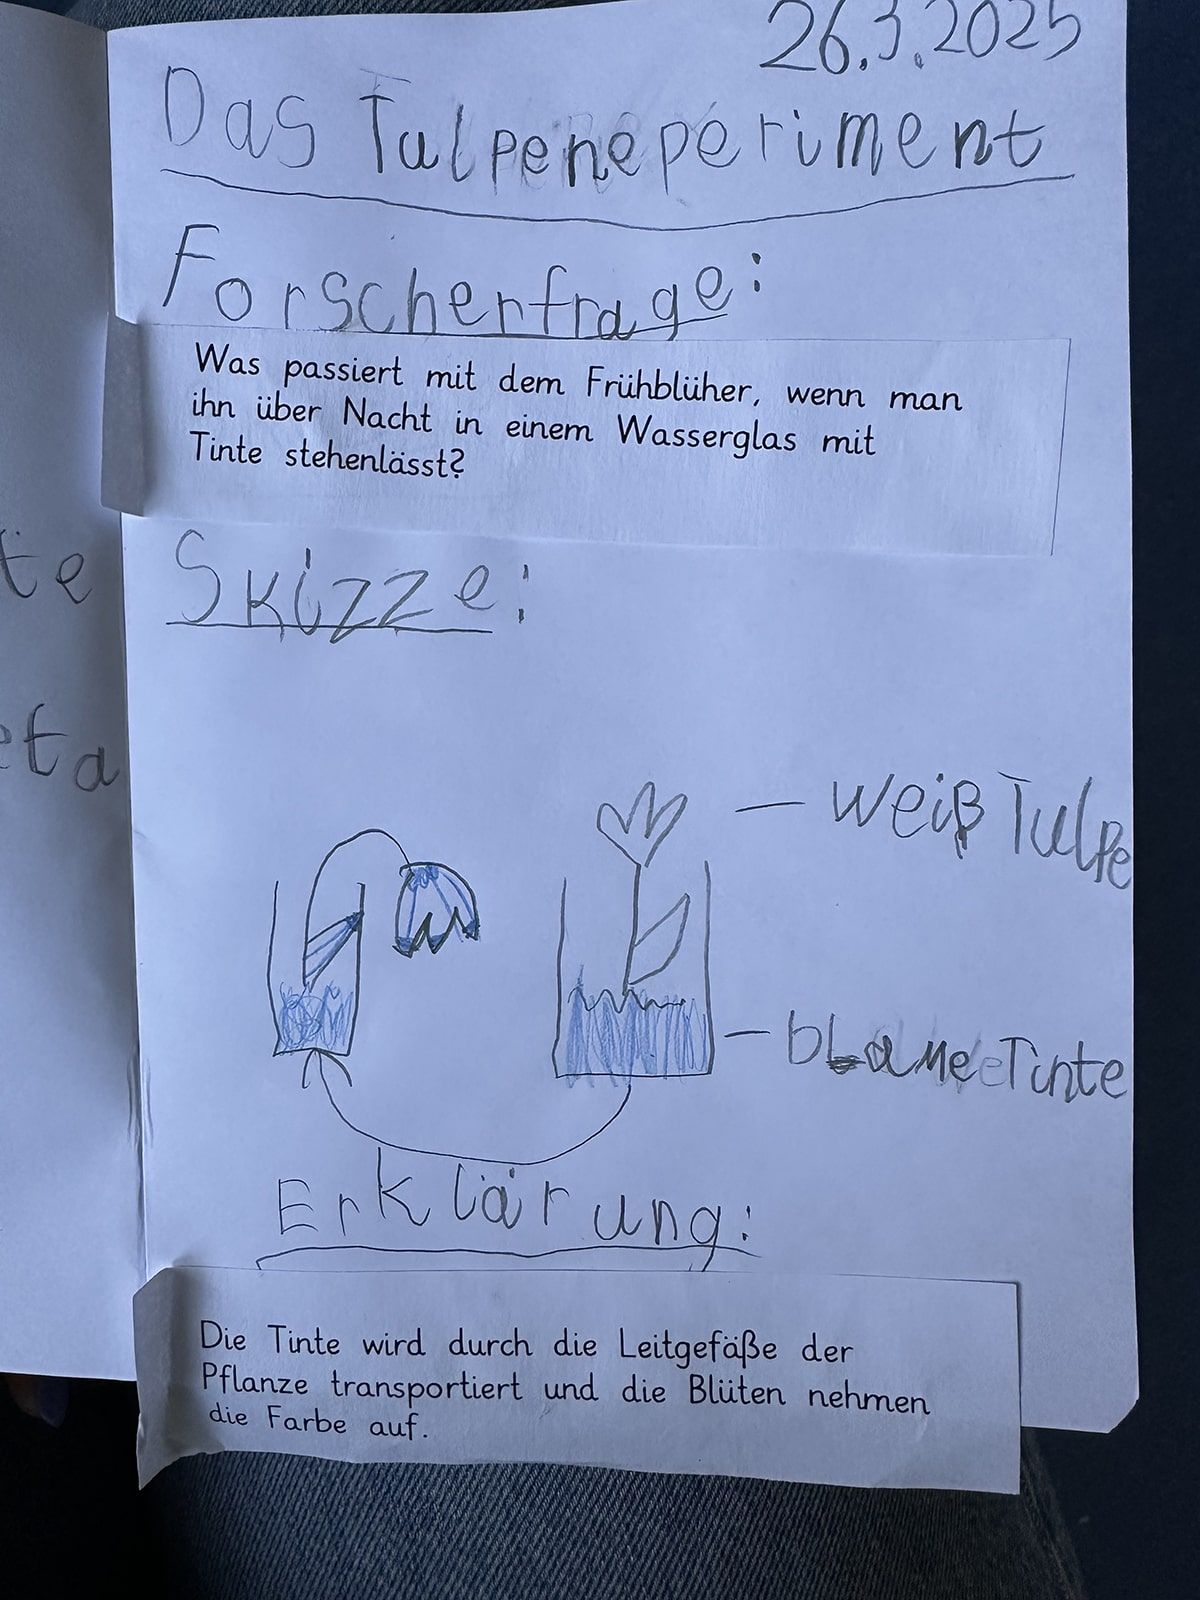 26.3.2025
Das Tulpeneperiment
Forscherfrage:
Was passiert mit dem Frühblüher, wenn man
ihn über Nacht in einem Wasserglas mit
Tinte stehenlässt?
te
Skizze:
eta
weiß Tulpe
blaue Tinte
Erklärung:
Die Tinte wird durch die Leitgefäße der
Pflanze transportiert und die Blüten nehmen
die Farbe auf.